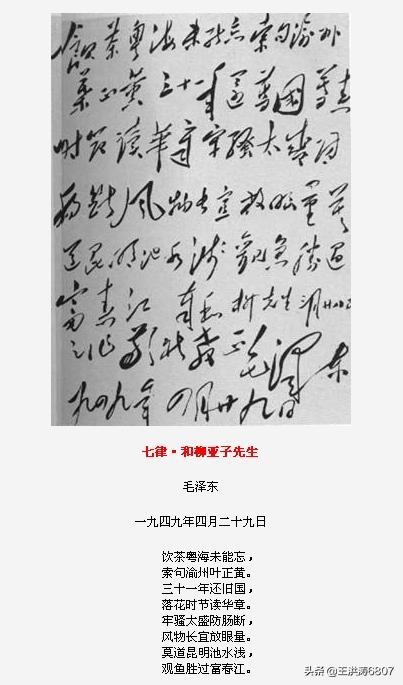 飲茶粤海未能忘索句渝州
葉正黄三十一年還舊國落花
时节读華章牢騷太盛防
腸断风物长宜放眼量莫
道昆明池水浅觀魚勝過
富春江 奉和柳先生三月廿八日
之作敬祈教正 毛泽东
一九四九年四月廿九日
七律·和柳亚子先生
毛泽东
一九四九年四月二十九日
饮茶粤海未能忘，
索句渝州叶正黄。
三十一年还旧国，
落花时节读华章。
牢骚太盛防肠断，
风物长宜放眼量。
莫道昆明池水浅，
观鱼胜过富春江。
头条 @王洪涛6807